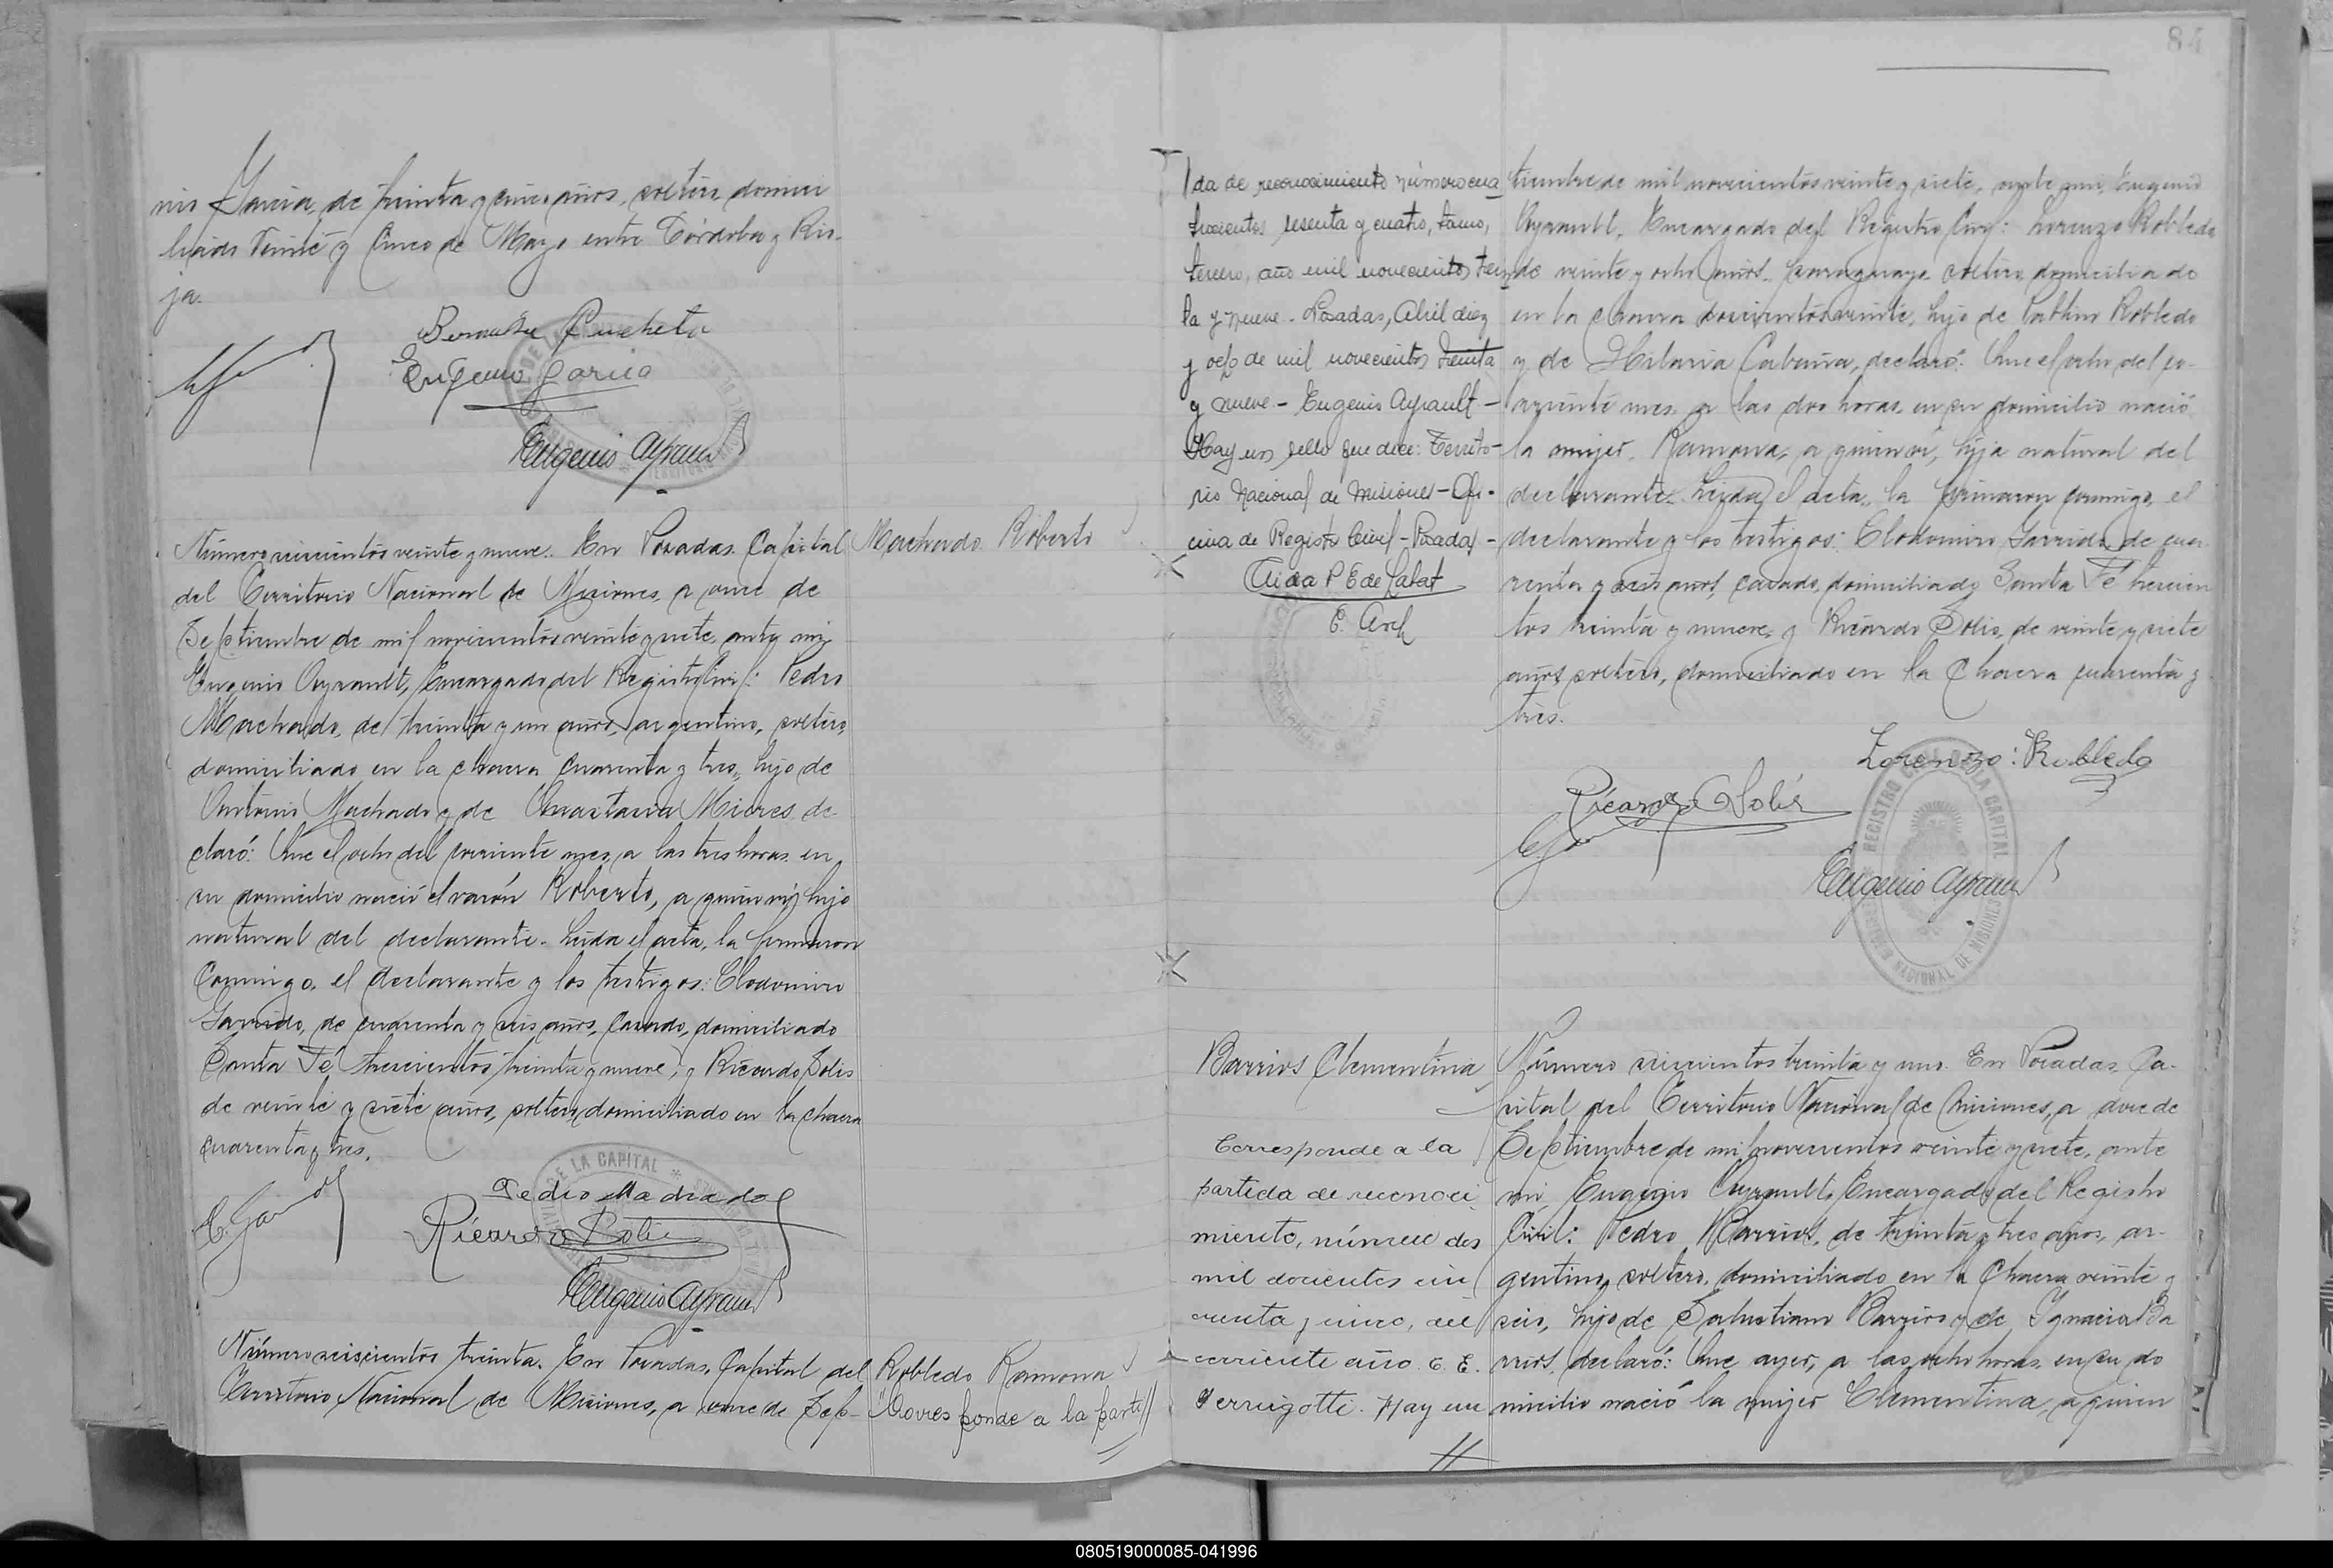 nio Garcia, de treinta y cinco años, soltero, domici
liado Veinte y Cinco de Mayo entre Córdoba y Rio-
ja.
Eugenio Garcia
Eugenio Ayrault
Número seiscientos veinte y nueve. En Posadas, Capital
Machado Roberto
del Territorio Nacional de Misiones, a once de
Septiembre de mil novecientos veinte y siete, ante mi,
Eugenio Ayrault, Encargado del Registro Civil: Pedro
Machado, de treinta y un años, argentino, soltero,
domiciliado en la chacra cuarenta y tres, hijo de
Antonio Machado y de Anastacia Mieres, de-
claró: Que el ocho del corriente mes, a las tres horas, en
su domicilio nació el varón Roberto, a quien ví, hijo
natural del declarante. Leida el acta, la firmaron
conmigo, el declarante y los testigos: Clodomiro
Garrido, de cuarenta y seis años, casado, domiciliado
Santa Fé trescientos treinta y nueve, y Ricardo Solis
de veinte y siete años, soltero, domiciliado en la chacra
cuarenta y tres.
DE LA CAPITAL
Pedro Machado
Ricardo Solis
Eugenio Ayrault
Número seiscientos treinta. En Posadas, Capital del
Territorio Nacional de Misiones, a once de Sep-
Robledo Ramona
Corresponde a la parti//
84
da de reconocimiento número cua
trocientos sesenta y cuatro, tomo,
tercero, año mil novecientos trein
ta y nueve - Posadas, Abril diez
y ocho de mil novecientos treinta
y nueve - Eugenio Ayrault -
Hay un sello que dice: Territo-
rio Nacional de Misiones - Ofi-
cina de Registro Civil - Posadas -
tiembre de mil novecientos veinte y siete, ante mi, Eugenio
Ayrault, Encargado del Registro Civil: Lorenzo Robledo
de veinte y ocho años, paraguayo, soltero, domiciliado
en la chacra doscientos veinte, hijo de Robledo
y de Hilaria Cabaña, declaró: Que el ocho del co-
rriente mes, a las dos horas, en su domicilio nació
la mujer, Ramona, a quien ví, hija natural del
declarante. Leida el acta, la firmaron conmigo, el
declarante y los testigos: Clodomiro Garrido, de cua-
renta y seis años, casado, domiciliado Santa Fé trescien
tos treinta y nueve, y Ricardo Solis, de veinte y siete
años, soltero, domiciliado en la Chacra cuarenta y
tres.
Lorenzo Robledo
Ricardo Solis
REGISTRO CIVIL DE LA CAPITAL
NACIONAL DE MISIONES
Eugenio Ayrault
Barrios Clementina
Corresponde a la
partida de reconoci
miento, número dos
mil doscientos cin
cuenta y cinco, del
corriente año. C. E.
Perrugotti. Hay un
//
Número seiscientos treinta y uno. En Posadas, Ca-
pital del Territorio Nacional de Misiones, a doce de
Septiembre de mil novecientos veinte y siete, ante
mi, Eugenio Ayrault, Encargado del Registro
Civil: Pedro Barrios, de treinta y tres años, ar-
gentino, soltero, domiciliado en la Chacra veinte y
seis, hijo de Salustiano Barrios y de Ignacia Ba
rrios, declaró: Que ayer, a las ocho horas, en su do
micilio nació la mujer Clementina, a quien
080519000085-041996